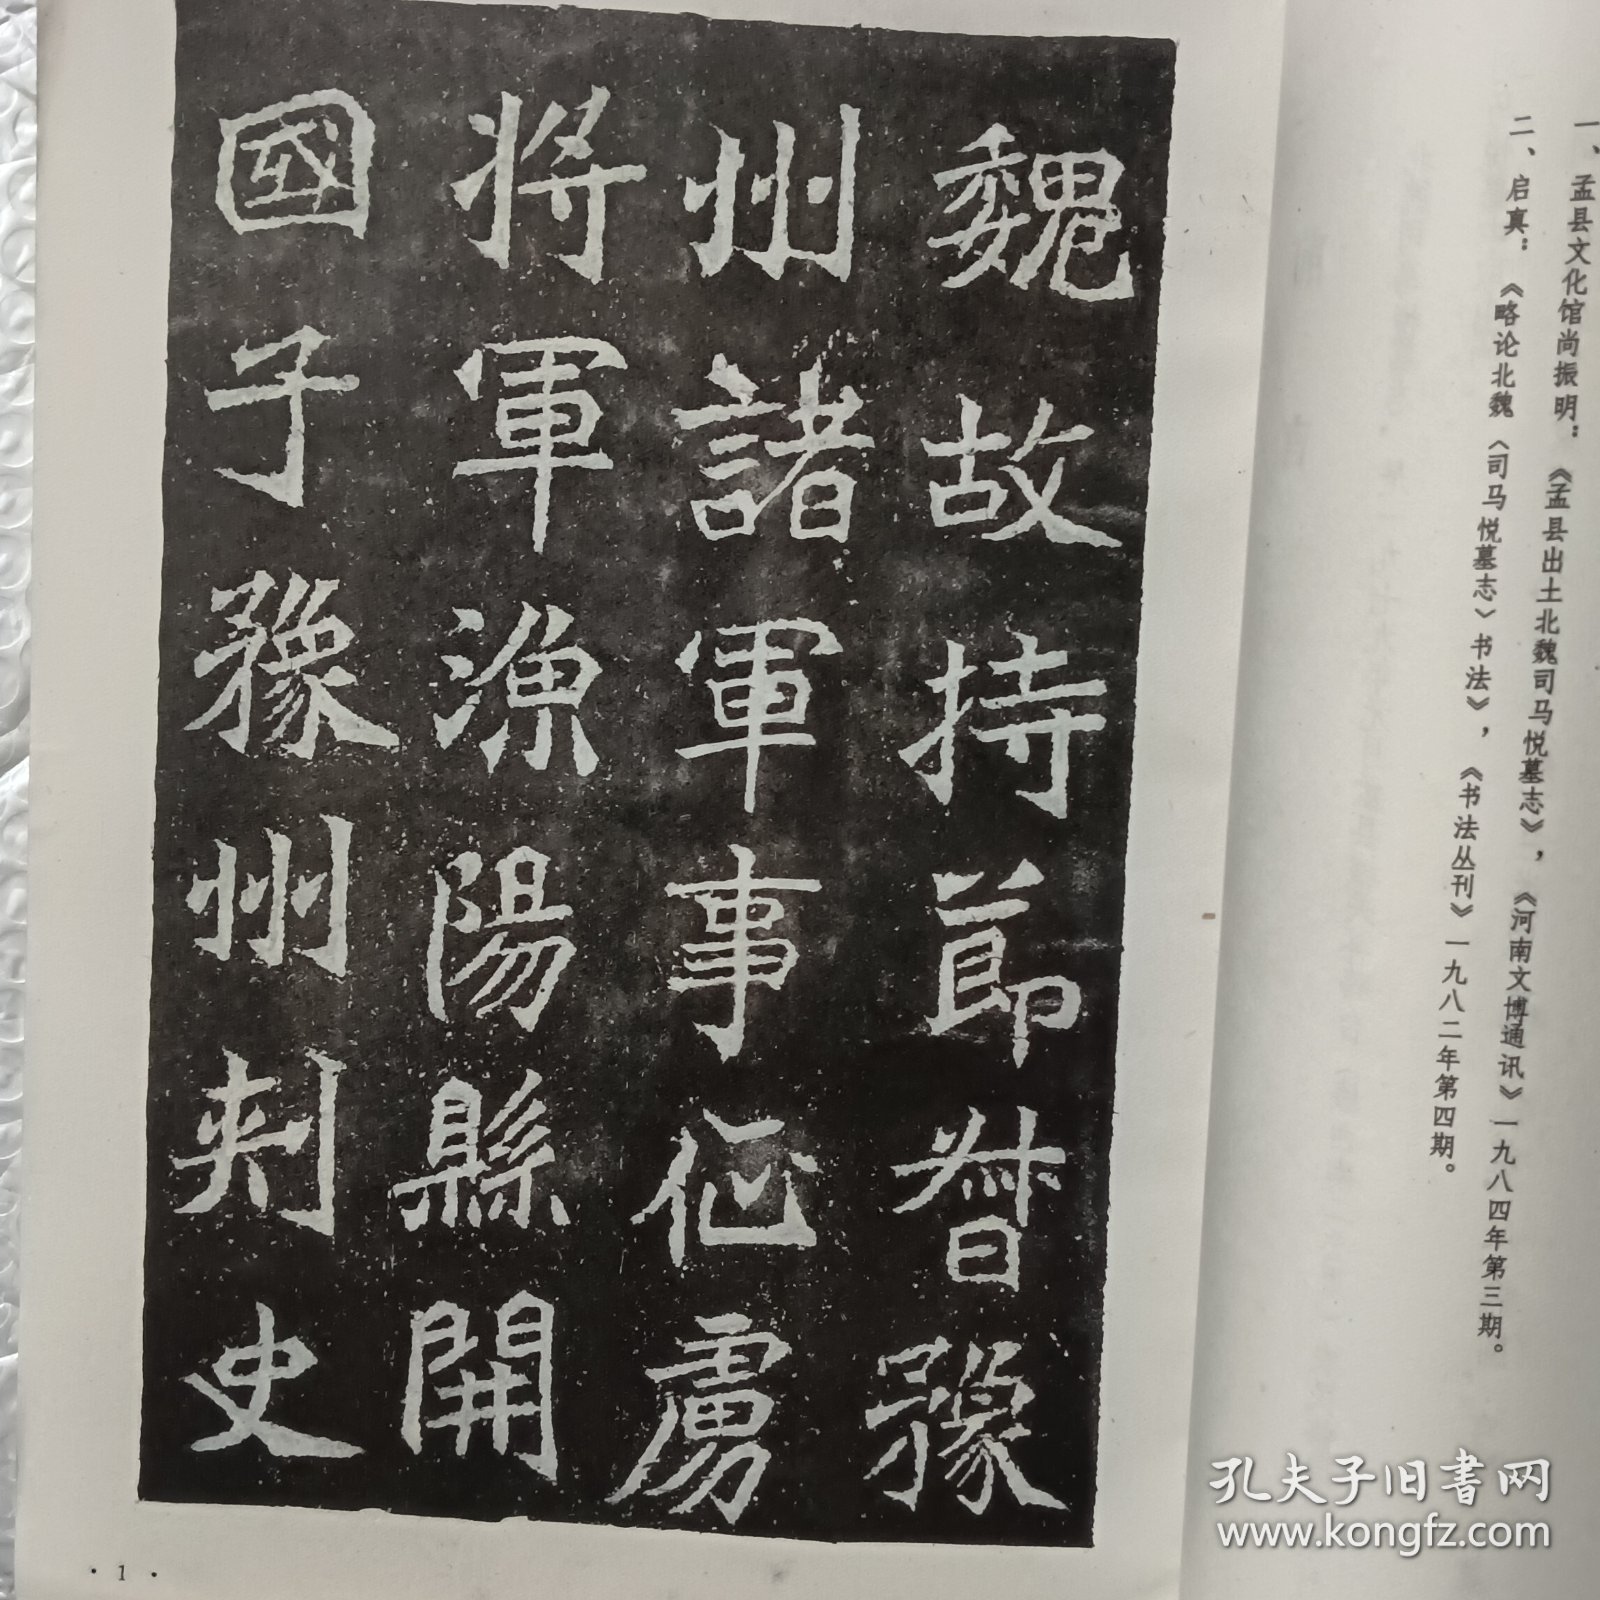 一、孟县文化馆尚振明：《孟县出土北魏司马悦墓志》，《河南文博通讯》一九八四年第三期。
二、启真：《略论北魏〈司马悦墓志〉书法》，《书法丛刊》一九八二年第四期。
魏故持節督豫
州諸軍事征虜
將軍漁陽縣開
國子豫州刺史
·1·
孔夫子旧书网
www.kongfz.com